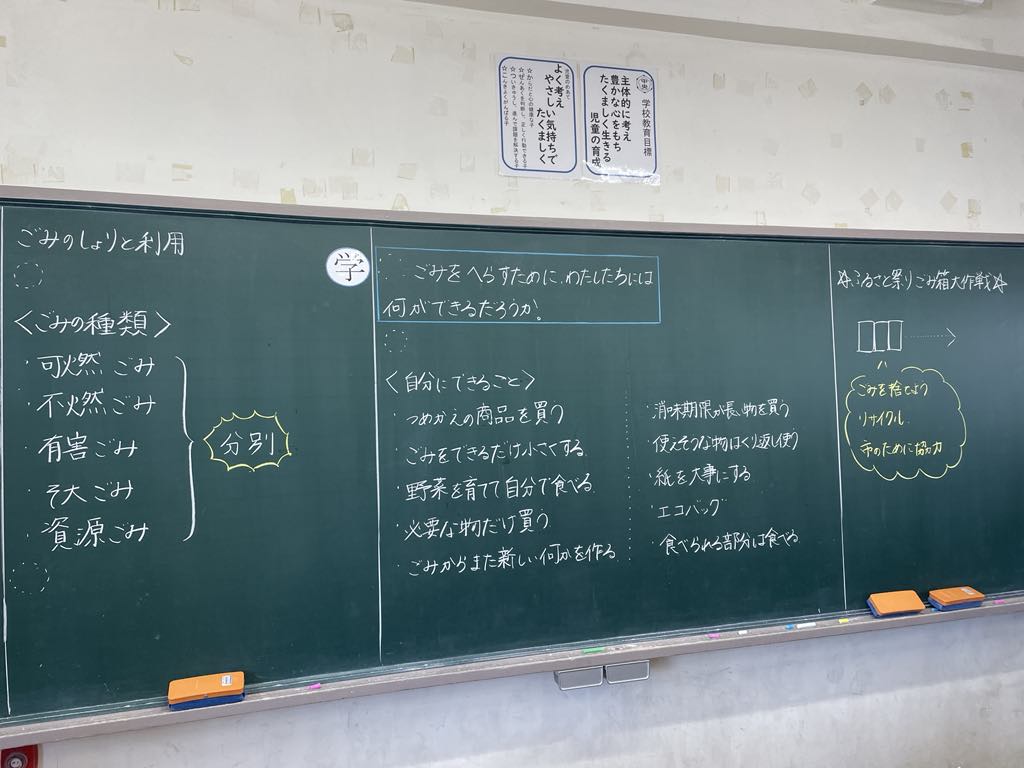 中央
学校教育目標
主体的に考え
豊かな心をもち
たくましく生きる
児童の育成
児童のめあて
よく考え
やさしい気持ちで
たくましく
ごみのしょりと利用
<ごみの種類>
・可燃ごみ
・不燃ごみ
・有害ごみ
・そ大ごみ
・資源ごみ
分別
学
ごみをへらすために、わたしたちには
何ができるだろうか。
<自分にできること>
・つめかえの商品を買う
・ごみをできるだけ小さくする
・野菜を育てて自分で食べる
・必要な物だけ買う
・ごみからまた新しい何かを作る
・消味期限が長い物を買う
・使えそうな物はくり返し使う
・紙を大事にする
・エコバッグ
・食べられる部分は食べる
☆ふるさと祭りごみ箱大作戦☆
ごみを捨てよう
リサイクル
市のために協力